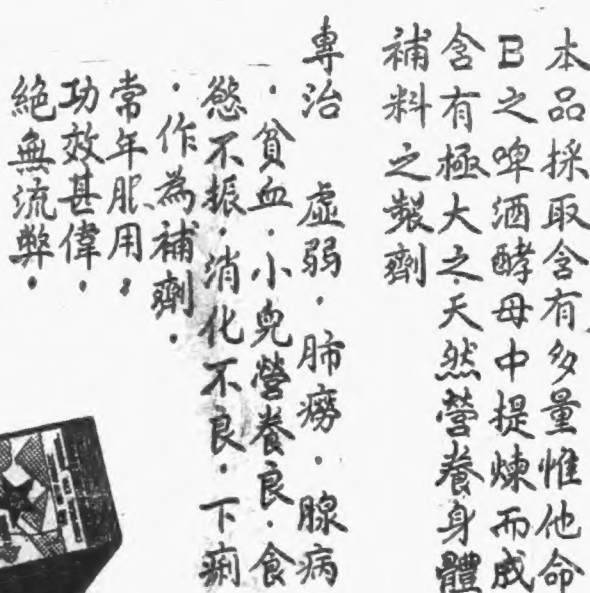 本品採取含有多量惟他命
B之啤酒酵母中提煉而成
含有極大之天然營養身體
補料之製劑
專治 虛弱．肺癆．腺病
．貧血．小兒營養良．食
慾不振．消化不良．下痢
．作為補劑．
常年服用，
功效甚偉．
絕無流弊．